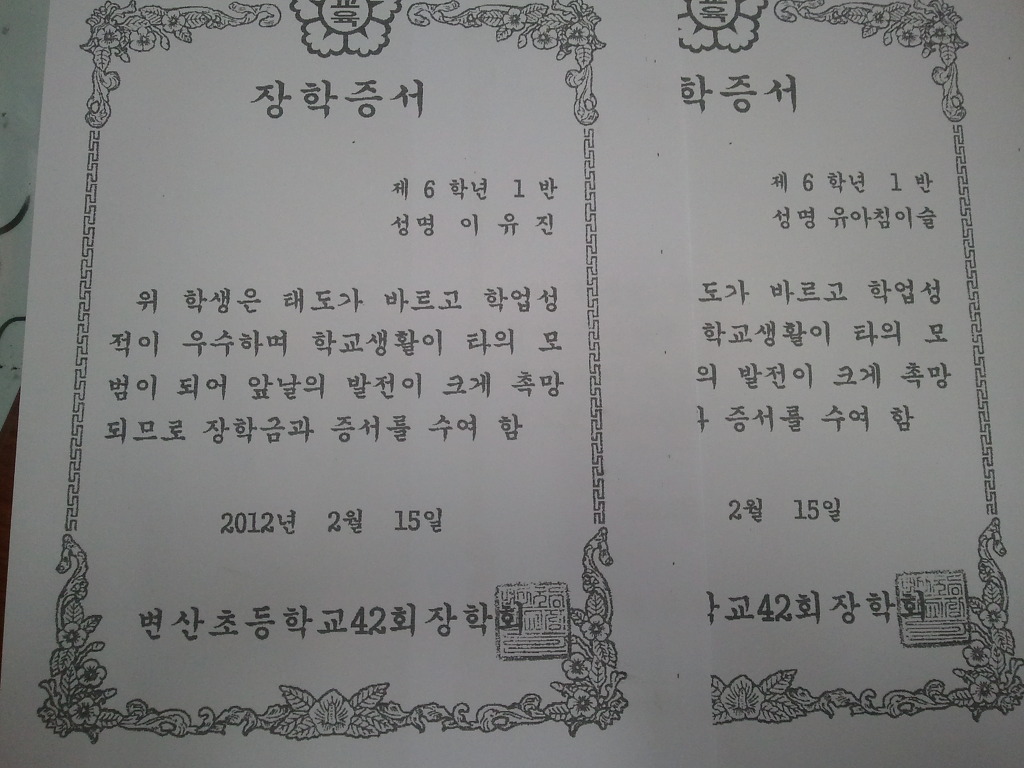 교육
장학증서
제 6 학년 1 반
성명 이 유 진
위 학생은 태도가 바르고 학업성
적이 우수하며 학교생활이 타의 모
범이 되어 앞날의 발전이 크게 촉망
되므로 장학금과 증서를 수여 함
2012년 2월 15일
변산초등학교42회장학회
육
학증서
제 6 학년 1 반
성명 유아침이슬
도가 바르고 학업성
학교생활이 타의 모
의 발전이 크게 촉망
증서를 수여 함
2월 15일
교42회장학회